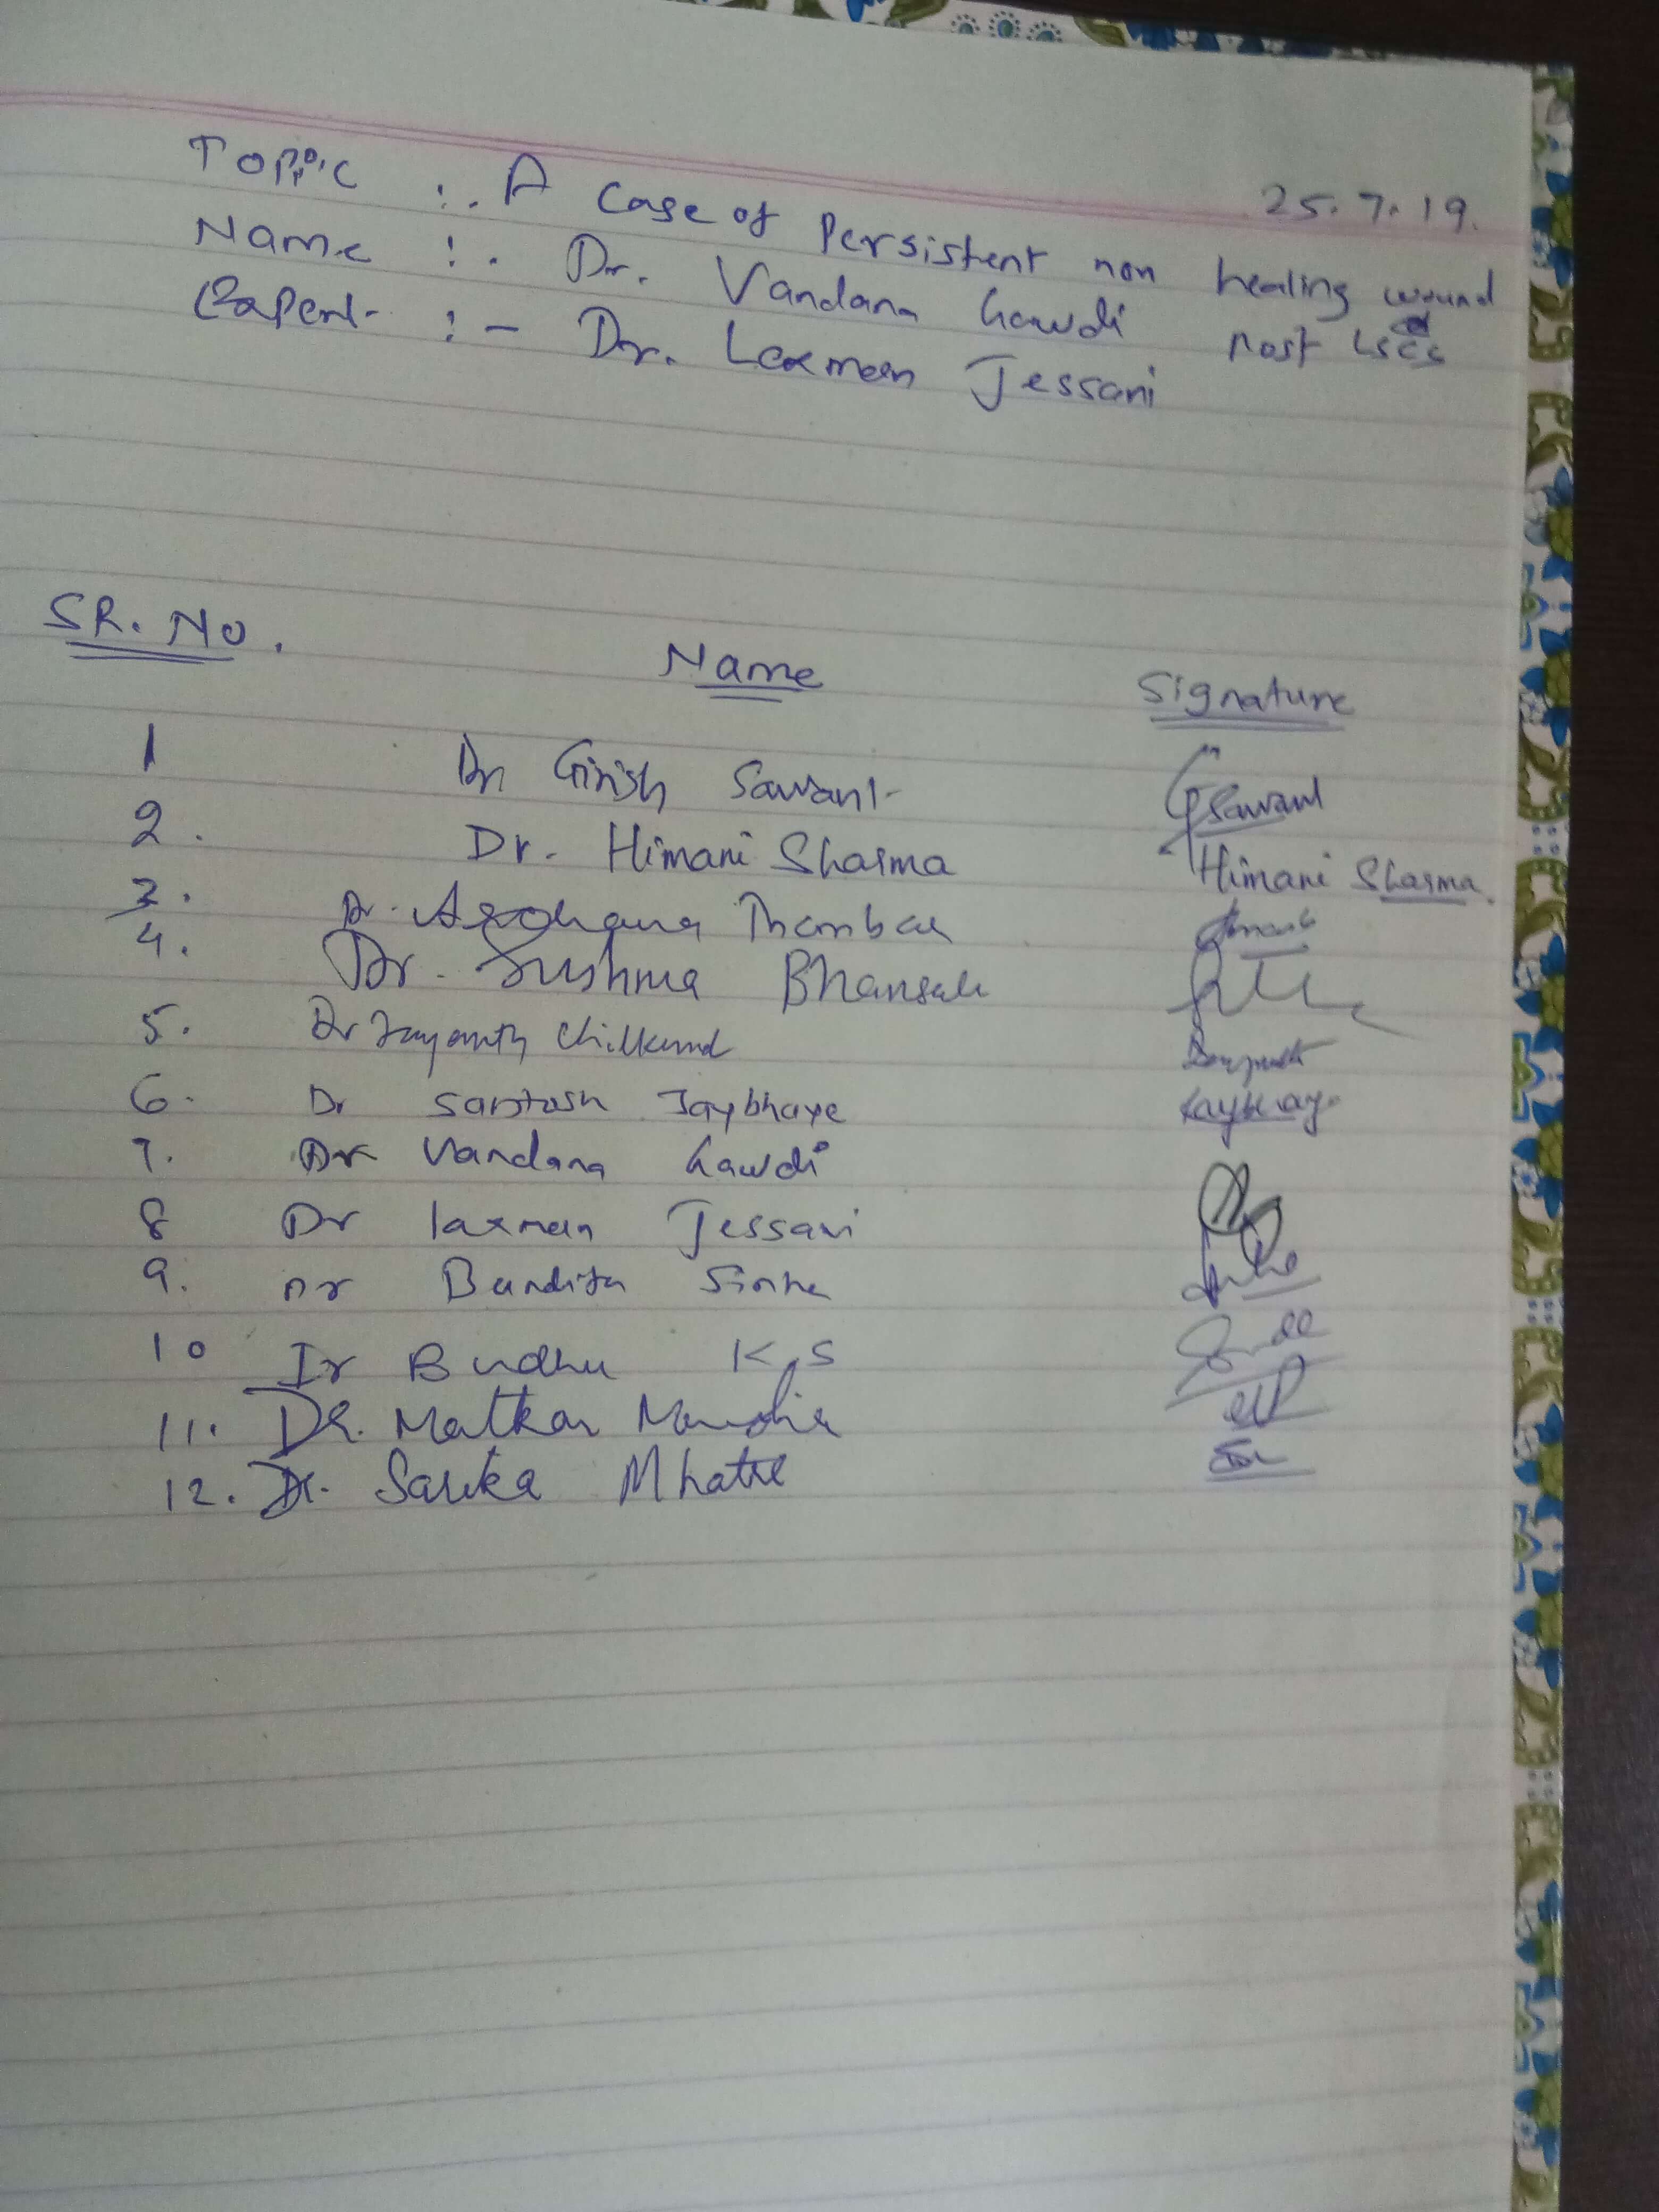 25.7.19.
Topic :. A case of Persistent non healing wound
post LSCS
Name :. Dr. Vandana Gawdi
Expert :- Dr. Laxman Jessani
SR. No. Name Signature
1 Dr Girish Sawant GSawant
2. Dr. Himani Sharma Himani Sharma.
3. Dr. Archana
4. Dr. Sushma Bhansali
5. Dr Jayanth Chilkund
6. Dr Santosh Jaybhaye
7. Dr Vandana Gawdi
8 Dr laxman Jessani
9. Dr Bandita Sinha
10 Dr Budhu K S
11. Dr. Matkar
12. Dr. Sarika Mhatre